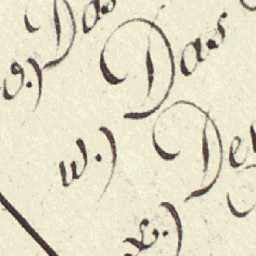 v.) Das
w.) Das
x.) Der